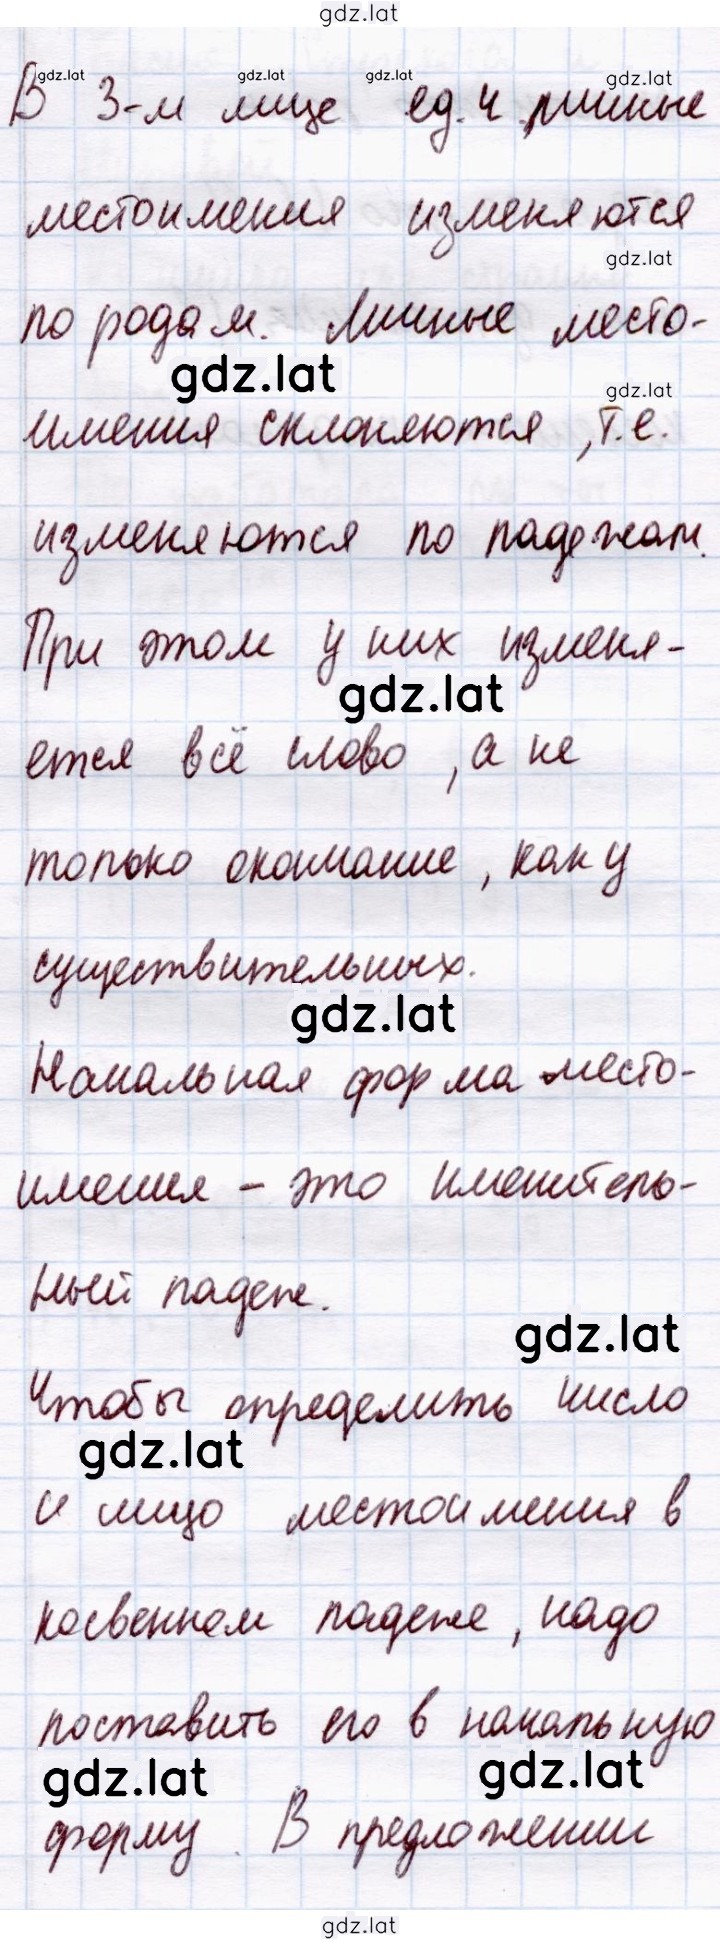 gdz.lat
gdz.lat gdz.lat gdz.lat gdz.lat
В 3-м лице ед.ч. личные
местоимения изменяются
gdz.lat
по родам. Личные место-
gdz.lat
gdz.lat
имения склоняются, т.е.
изменяются по падежам.
При этом у них изменя-
gdz.lat
ется всё слово, а не
только окончание, как у
существительных.
gdz.lat
Начальная форма место-
имения - это именитель-
ный падеж.
gdz.lat
Чтобы определить число
gdz.lat
и лицо местоимения в
косвенном падеже, надо
поставить его в начальную
gdz.lat gdz.lat
форму. В предложении
gdz.lat